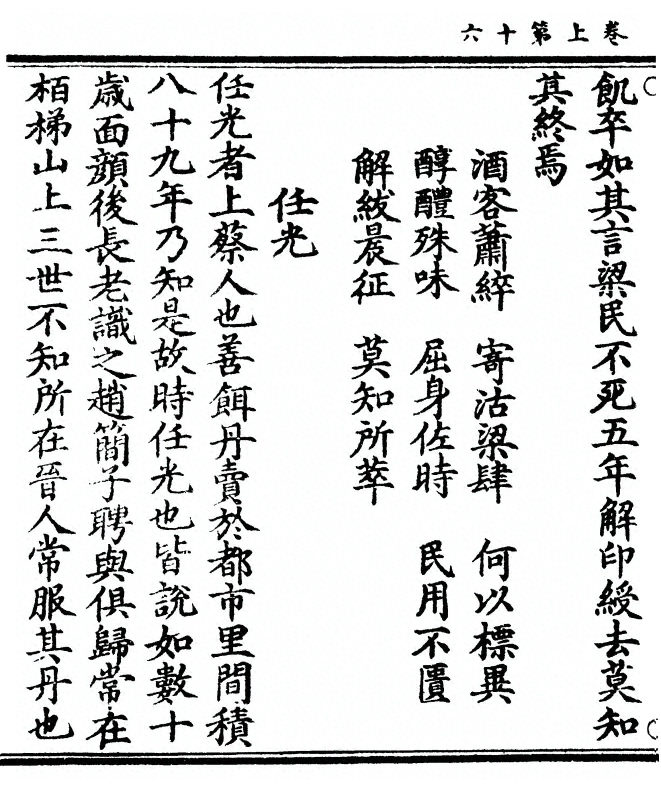 卷上第十六
飢卒如其言梁民不死五年解印綬去莫知
其終焉
酒客蕭綷　寄沽梁肆　何以標異
醇醴殊味　屈身佐時　民用不匱
解紱晨征　莫知所萃
任光
任光者上蔡人也善餌丹賣於都市里間積
八十九年乃知是故時任光也皆說如數十
歲面顔後長老識之趙簡子聘與俱歸常在
栢梯山上三世不知所在晉人常服其丹也